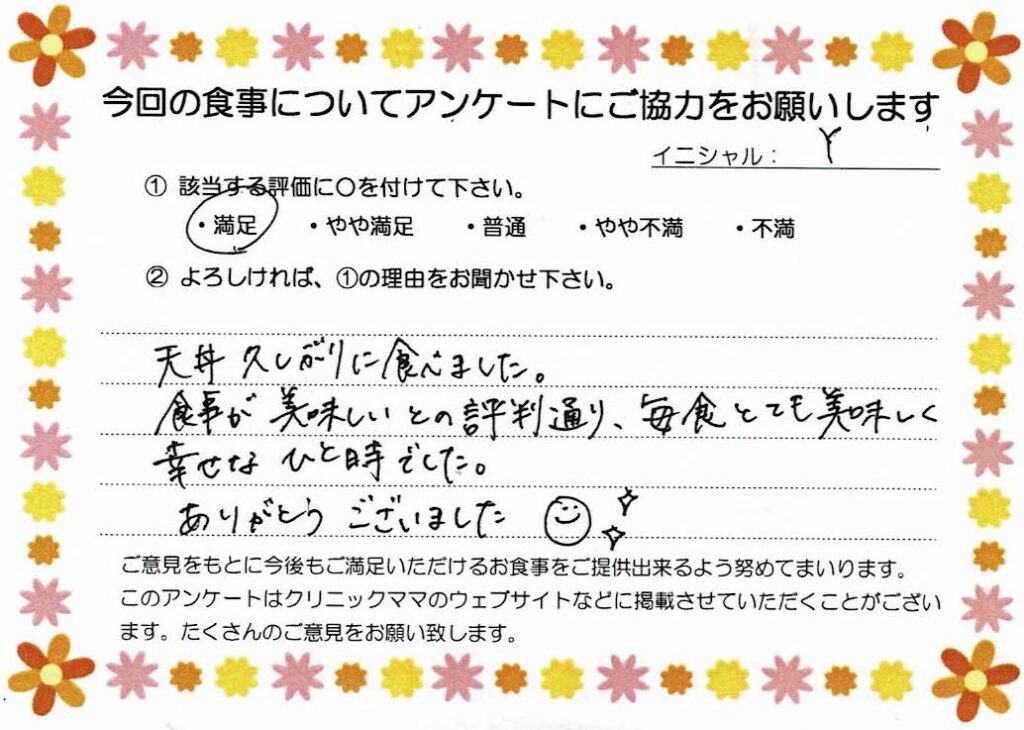 今回の食事についてアンケートにご協力をお願いします
イニシャル： Y
① 該当する評価に〇を付けて下さい。
・満足 ・やや満足 ・普通 ・やや不満 ・不満
② よろしければ、①の理由をお聞かせ下さい。
天丼 久しがりに食べました。
食事が 美味しいとの評判通り、毎食とても美味しく
幸せな ひと時でした。
ありがとう ございました
ご意見をもとに今後もご満足いただけるお食事をご提供出来るよう努めてまいります。
このアンケートはクリニックママのウェブサイトなどに掲載させていただくことがござい
ます。たくさんのご意見をお願い致します。